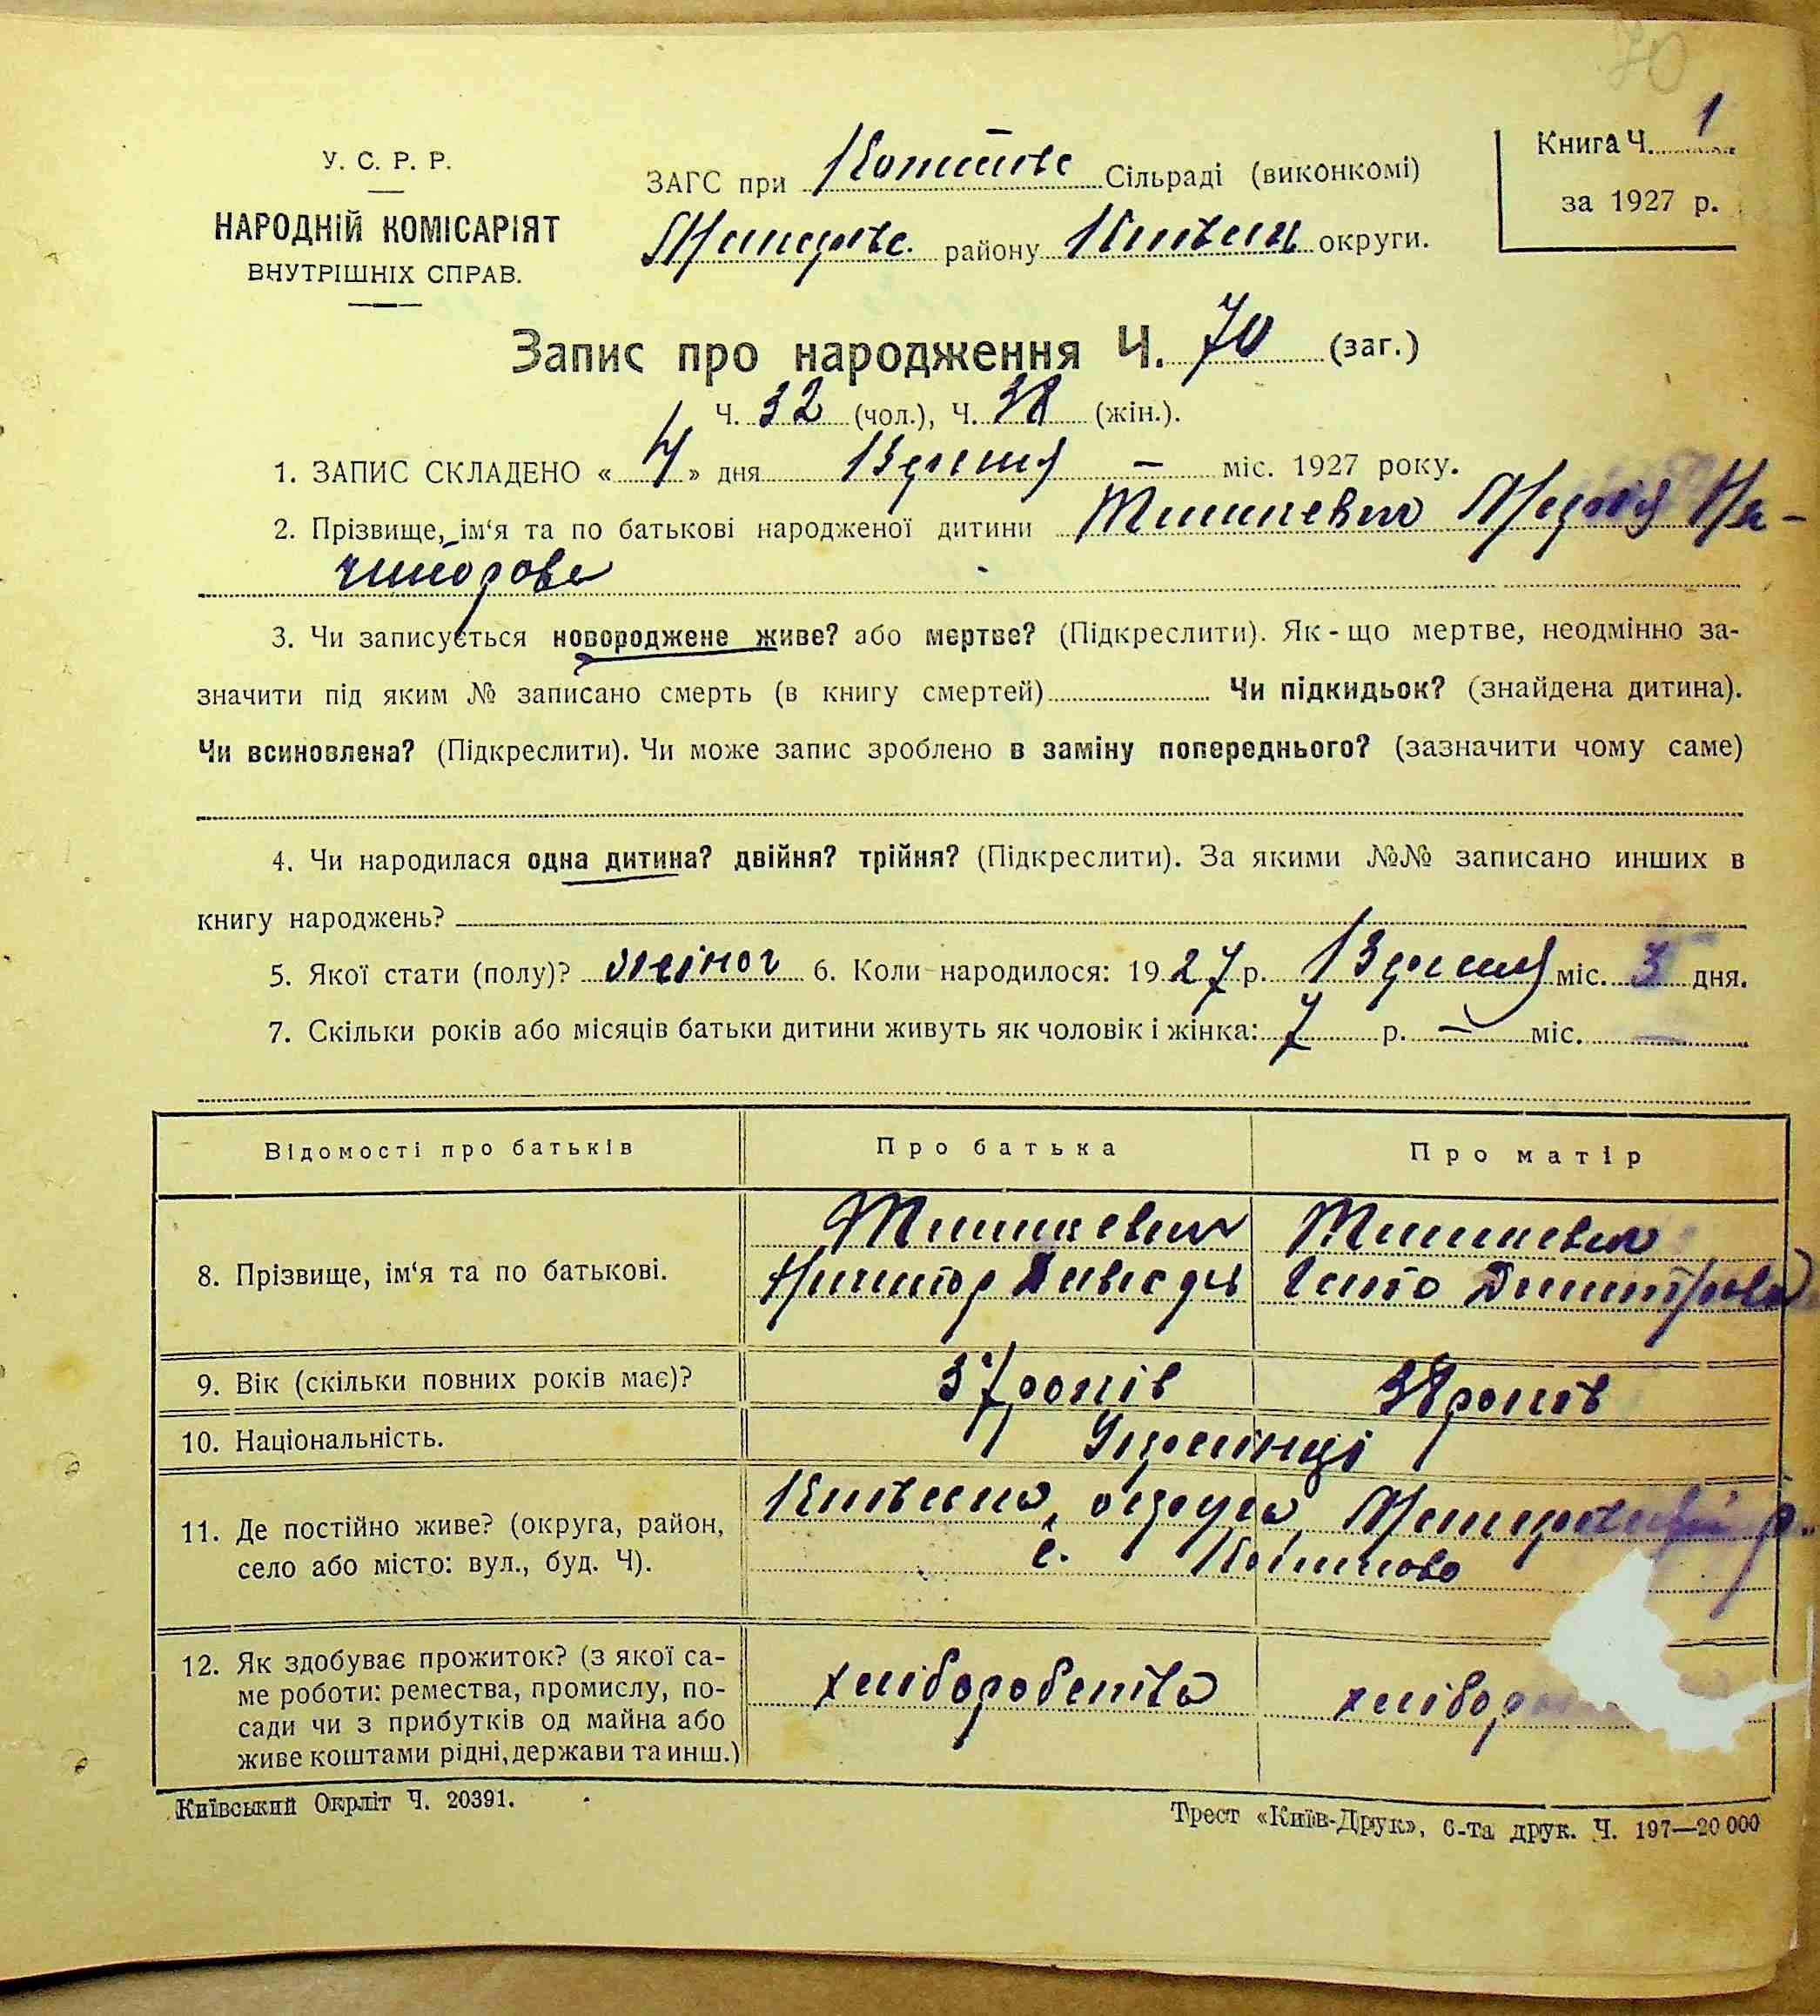 70
У. С. Р. Р.
НАРОДНІЙ КОМІСАРІЯТ
ВНУТРІШНІХ СПРАВ.
ЗАГС при Сільраді (виконкомі)
району округи.
Книга Ч. 1
за 1927 р.
Запис про народження Ч. 70 (заг.)
Ч. 32 (чол.), Ч. 38 (жін.).
1. ЗАПИС СКЛАДЕНО « 4 » дня Вересня — міс. 1927 року.
2. Прізвище, ім‘я та по батькові народженої дитини
3. Чи записується новороджене живе? або мертве? (Підкреслити). Як-що мертве, неодмінно за-
значити під яким № записано смерть (в книгу смертей) Чи підкидьок? (знайдена дитина).
Чи всиновлена? (Підкреслити). Чи може запис зроблено в заміну попереднього? (зазначити чому саме)
4. Чи народилася одна дитина? двійня? трійня? (Підкреслити). За якими №№ записано инших в
книгу народжень?
5. Якої стати (полу)? жіноч 6. Коли народилося: 1927 р. Вересня міс. 3 дня.
7. Скільки років або місяців батьки дитини живуть як чоловік і жінка: 7 р. — міс. —
Відомості про батьків Про батька Про матір
8. Прізвище, ім‘я та по батькові.
9. Вік (скільки повних років має)? 37 років 38 років
10. Національність. Українці
11. Де постійно живе? (округа, район,
село або місто: вул., буд. Ч). с.
12. Як здобуває прожиток? (з якої са-
ме роботи: ремества, промислу, по-
сади чи з прибутків од майна або
живе коштами рідні, держави та инш.)
хліборобство
Київський Окрліт Ч. 20391.
Трест «Київ-Друк», 6-та друк. Ч. 197—20 000